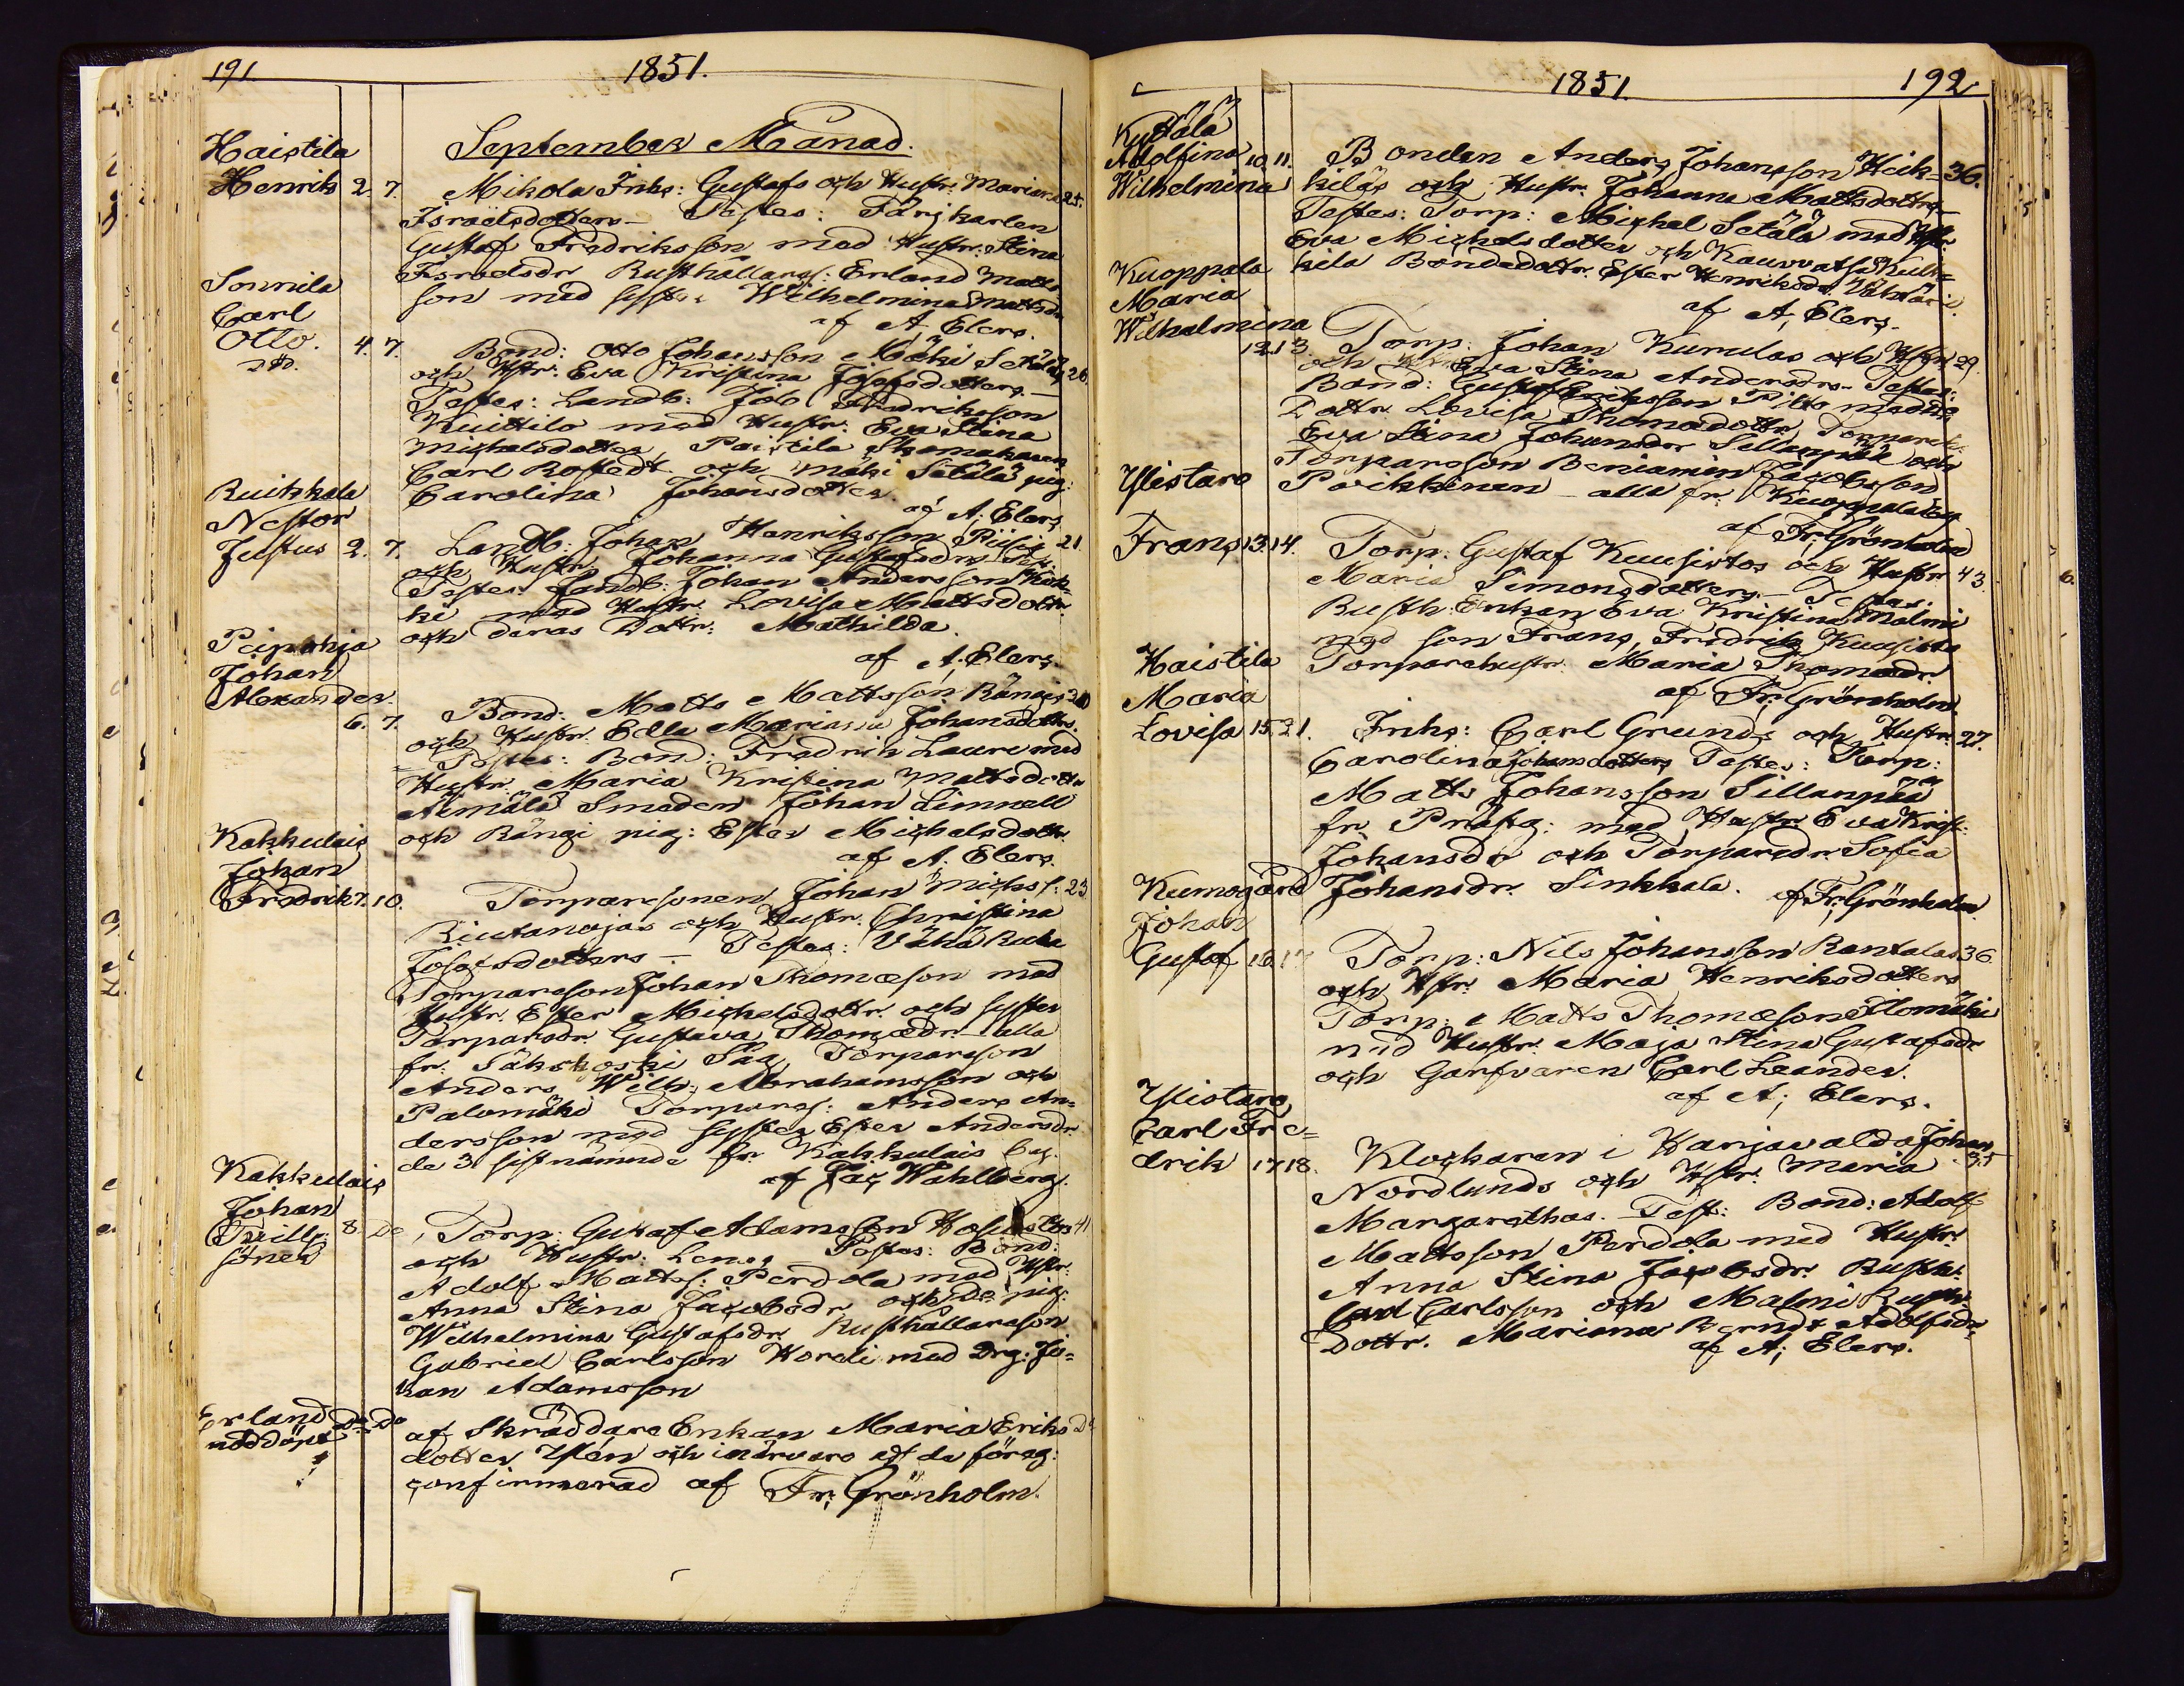 191
1851.
September Månad.
Haistila
Henrik 2. 7. Mikola Inhs: Gustafs och Hustr: Mariana 25.
Israëlsdotters— Testes: Färjkarlen
Gustaf Fredriksson med Hustr: Stina
Israelsdr Rusthållarss: Erland Matts
son med syster Wilhelmina Mattsdr
af A, Elers.
Sonnila
Carl
Otto. 4. 7. Bond: Otto Johansson Mäki Setälä 26.
och Hstr: Eva Kristina Josefsdotters—
Testes: Landb: Job Fredriksson
Kuittilo med Hustr: Eva Stina
Michelsdotter, Paistila Skomakaren
Carl Rostedt och Mäki Setälä pig:
Carolina Johansdotter.
af A; Elers
Ruikkala
Nestor
Justus 2. 7. Landb: Johan Henriksson 21.
och Hustr: Johanna Gustafsdrs
Testes Landb: Johan Andersson
ki med Hustr. Lovisa Mattsdotter
och deras Dottr: Mathilda.
af A. Elers.
Peipohja
Johan
Alexander.
6. 7. Bond: Matts Mattsson Rängis
och Hustr. Edla Mariana Johansdotters.
Testes: Bond: Fredrik Lauri med
Hustr. Maria Kristina Mattsdottr
Äimälä Smeden Johan Limnell
och Rängi pig: Ester Michelsdottr.
af A. Elers.
Kakkulais
Johan
Fredrik 7. 10. Torparesonen Johan Michss: 23
Riutanojas och Hustr. Christina
Josefsdotters — Testes: Vähä
Torpareson Johan Thomæson med
Hustr. Ester Michelsdottr. och syster
Torparedr Gustava Thomædr— alla
fr: Säkskoski Såg, Torpareson
Anders Wilh: Abrahamsson och
Palomäki Torpares: Anders An=
dersson med syster Ester Andersdr.
de 3 sistnämnde fr. Kakkulais
af Jac Wahlberg.
Kakkulais
Johan
Tvill- 8. Do, Torp: Gustaf Adamsson 41
söner och Hustr: Lenas Testes: Bond:
Adolf Mattss: Perdola med Hstr:
Anna Stina Jacobsdr och Do pig:
Wilhelmina Gustafsdr. Rusthållareson
Gabriel Carlsson Hordi med Drg: Jo=
han Adamsson
Erland Do Do
nöddöpt af Skräddare Enkan Maria Eriks Do
dotter Ylén och i närvaro af de föreg:
confirmerad af Fr; Grönholm.
1851. 192
Kyttälä
Adolfina 10. 11. Bonden Anders Johansson Heik= 36.
Wilhelmina kiläs och Hustr. Johanna Mattsdottrs—
Testes: Torp: Michel Setälä med Hstr.
Eva Michelsdotter och Kauvvatsa
kila Bondedottr. Ester Henriksdr.
af A, Elers.
Kuoppala
Maria
Wilhelmina
12. 13. Torp: Johan Kurulas och Hstr 29.
och Eva Stina Andersdrs— Testes:
Bond: Gustaf Eriksson med
Dottr. Lovisa Thomædottr, Torparedr
Eva Stina Johansdr Sillanpää och
Torpareson Beniamin Jacobsson
Pävikkinen— alla fr. Kuoppala by
af Fr; Grönholm
Ylistaro
Frans 13. 14. Torp: Gustaf Kuusistos och Hustr 43.
Maria Simonsdotters— Testes:
Rusth: Enkan Eva Kristina Malmi
med son Frans, Fredrik Kuusisto
Torparehustr. Maria Thomædr
af Fr: Grönholm.
Haistila
Maria
Lovisa 15. 21. Inhs: Carl Grunds och Hustr. 27.
Carolina Johansdotters Testes: Torp:
Matts Johansson Sillanpää
fr. Prästg: med Hustr Eva Krist:
Johansdr och Torparedr. Sofia
Johansdr. Sinkkala. af Fr; Grönholm
Kumogård
Johan
Gustaf 16. 17. Torp: Nils Johansson Rantalas 36.
och Hstr: Maria Henriksdotters
Torp: Matts Thomæson Ilomäki
med Hustr. Maja Stina Gustafsdr
och Garfvaren Carl Leander.
af A; Elers.
Ylistaro
Carl Fre=
drik 17. 18. Klockaren i Harjavalda Johan 35
Nordlunds och Hstr. Maria
Margarethas. Test: Bond: Adolf
Mattsson Perdola med Hustr.
Anna Stina Jacobsdr. Rusth:
Carl Carlsson och Malmi Rusth.
Dottr. Mariana Berndt Adolfsdr.
af A; Elers.